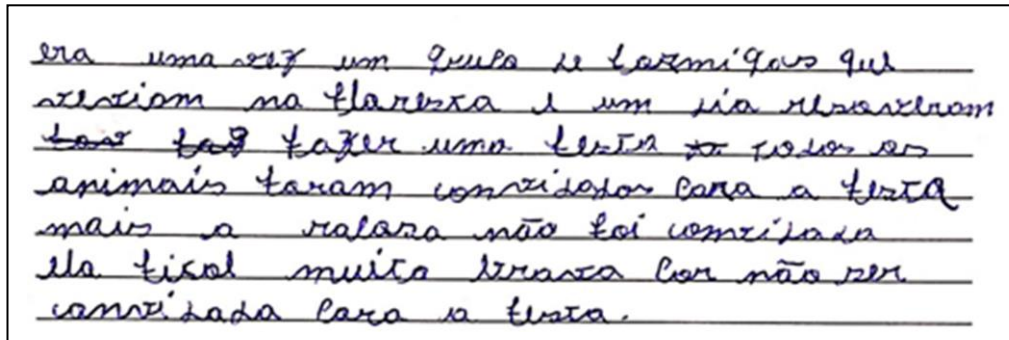 era uma vez um grupo de formigas que
viviam na floresta e um dia resoveram
fazer uma festa todos os
animais foram convidados para a festa
mais a raposa não foi convidada
ela ficol muito brava por não ser
convidada para a festa.